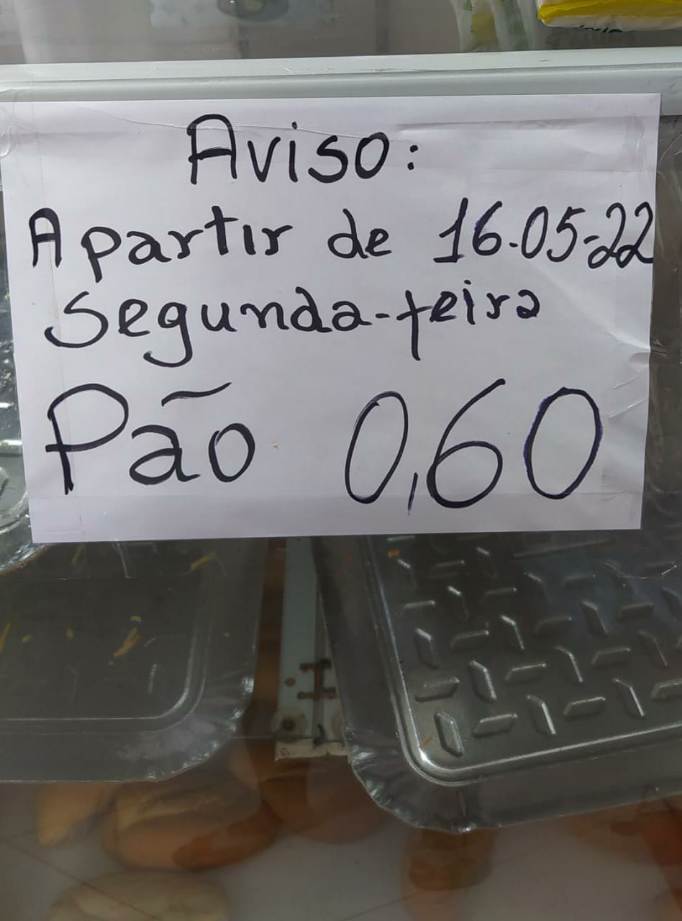 Aviso:
A partir de 16.05-22
Segunda-feira
Pão 0,60